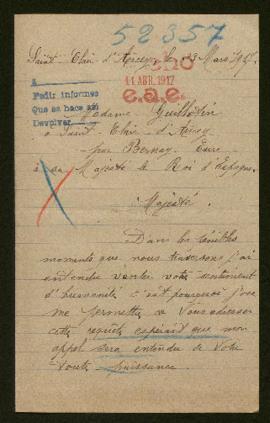 52357
Saint Clair d'Arcey, le 13 Mars 1917
eho
11 ABR. 1917
e.a.e.
A
Pedir informes
Que se hace así
Devolver
Madame Guillotin
à Saint Clair d'Arcey
par Bernay Eure
à sa Majesté le Roi d'Espagne
Majesté
Dans les terribles
moments que nous traversons j'ai
entendu vanter votre sentiment
d'humanité c'est pourquoi j'ose
me permettre de Vous adresser
cette requête espérant que mon
appel sera entendu de Votre
toute puissance